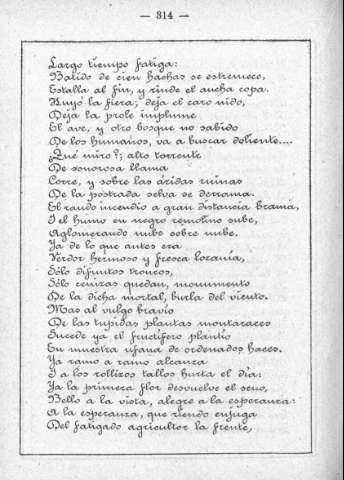 — 314 —
Largo tiempo fatiga:
Batido de cien hachas se estremece,
Estalla al fin, y rinde el ancha copa.
Huyó la fiera; deja el caro nido,
Deja la prole implume
El ave, y otro bosque no sabido
De los humanos, va a buscar doliente....
¿Qué miro?; alto torrente
De sonorosa llama
Corre, y sobre las áridas ruinas
De la postrada selva se derrama.
El raudo incendio a gran distancia brama,
I el humo en negro remolino sube,
Aglomerando nube sobre nube.
Ya de lo que antes era
Verdor hermoso y fresca lozanía,
Sólo difuntos troncos,
Sólo cenizas quedan, monumento
De la dicha mortal, burla del viento.
Mas al vulgo bravío
De las tupidas plantas montaraces
Sucede ya el fructífero plantío
En muestra ufana de ordenados haces.
Ya ramo a ramo alcanza
I a los rollizos tallos hurta el día:
Ya la primera flor desvuelve el seno,
Bello a la vista, alegre a la esperanza:
A la esperanza, que riendo enjuga
Del fatigado agricultor la frente,